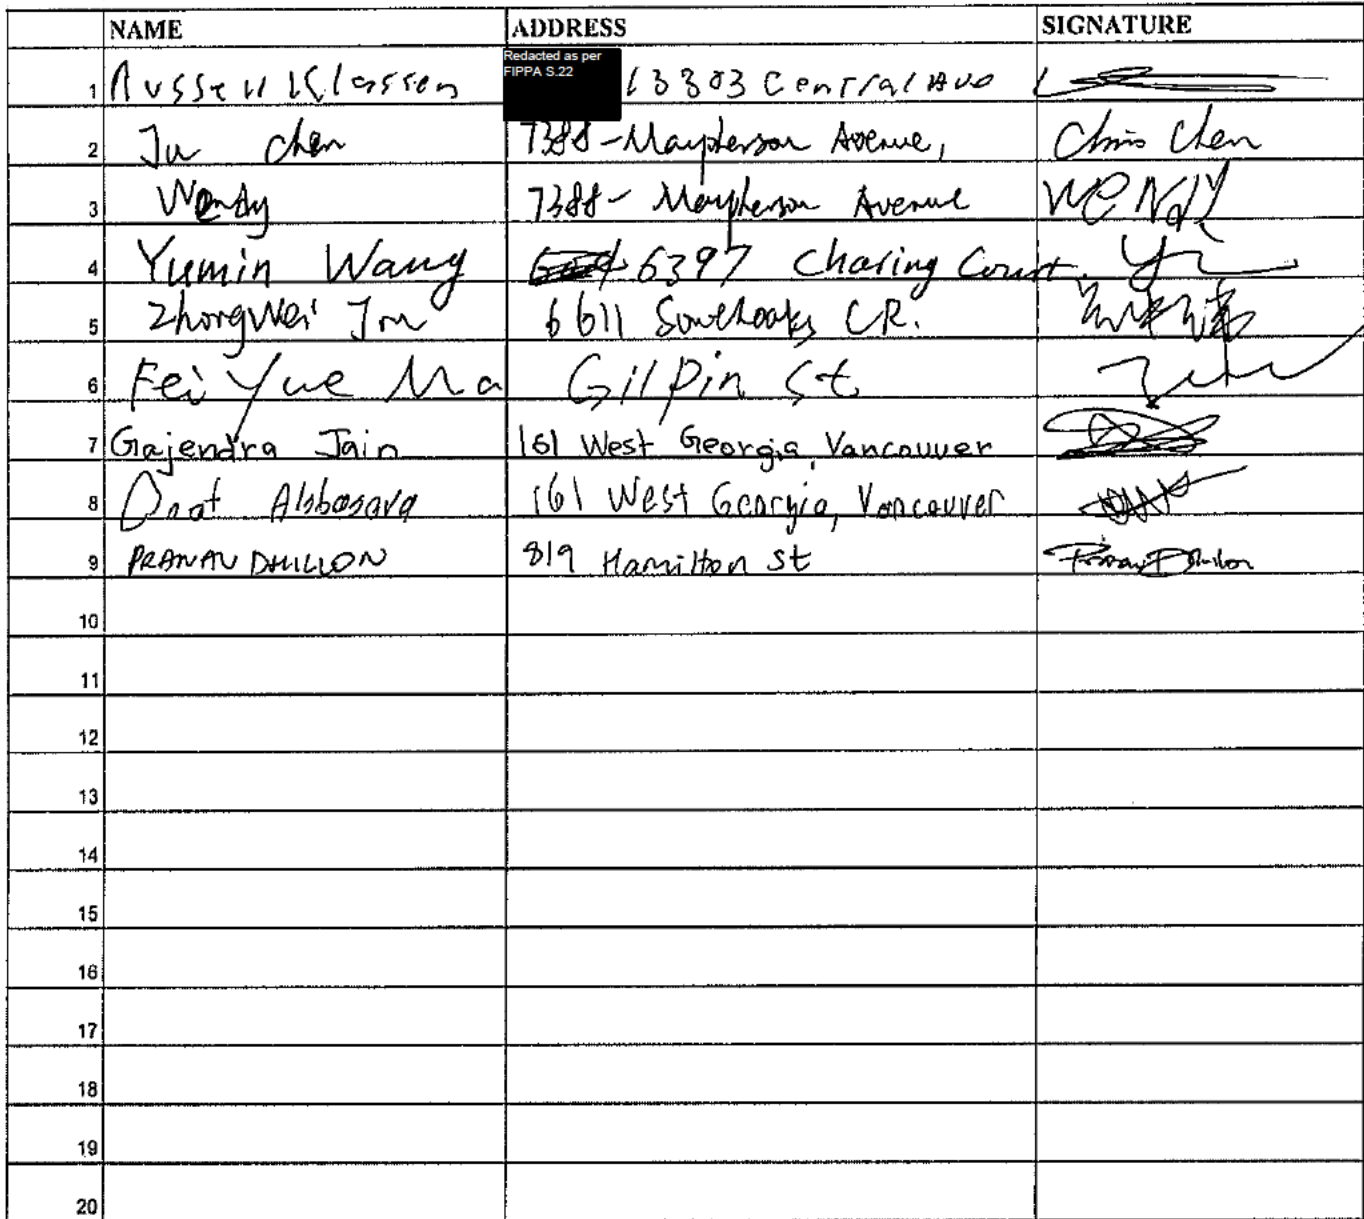 NAME ADDRESS SIGNATURE
Redacted as per
FIPPA S.22
1 Russell Klassen 13303 Central Ave
2 Ju Chen 7388 - Maypherson Avenue, Chris Chen
3 Wendy 7388 - Maypherson Avenue WENdY
4 Yumin Wang 6397 Charing Court.
5 ZhongWei 6611 CR.
6 Fei Yue Ma Gilpin St
7 Gajendra Jain 161 West Georgia, Vancouver
8 161 West Georgia, Vancouver
9 PRANAV DHILLON 819 Hamilton St Pranav Dhillon
10
11
12
13
14
15
16
17
18
19
20